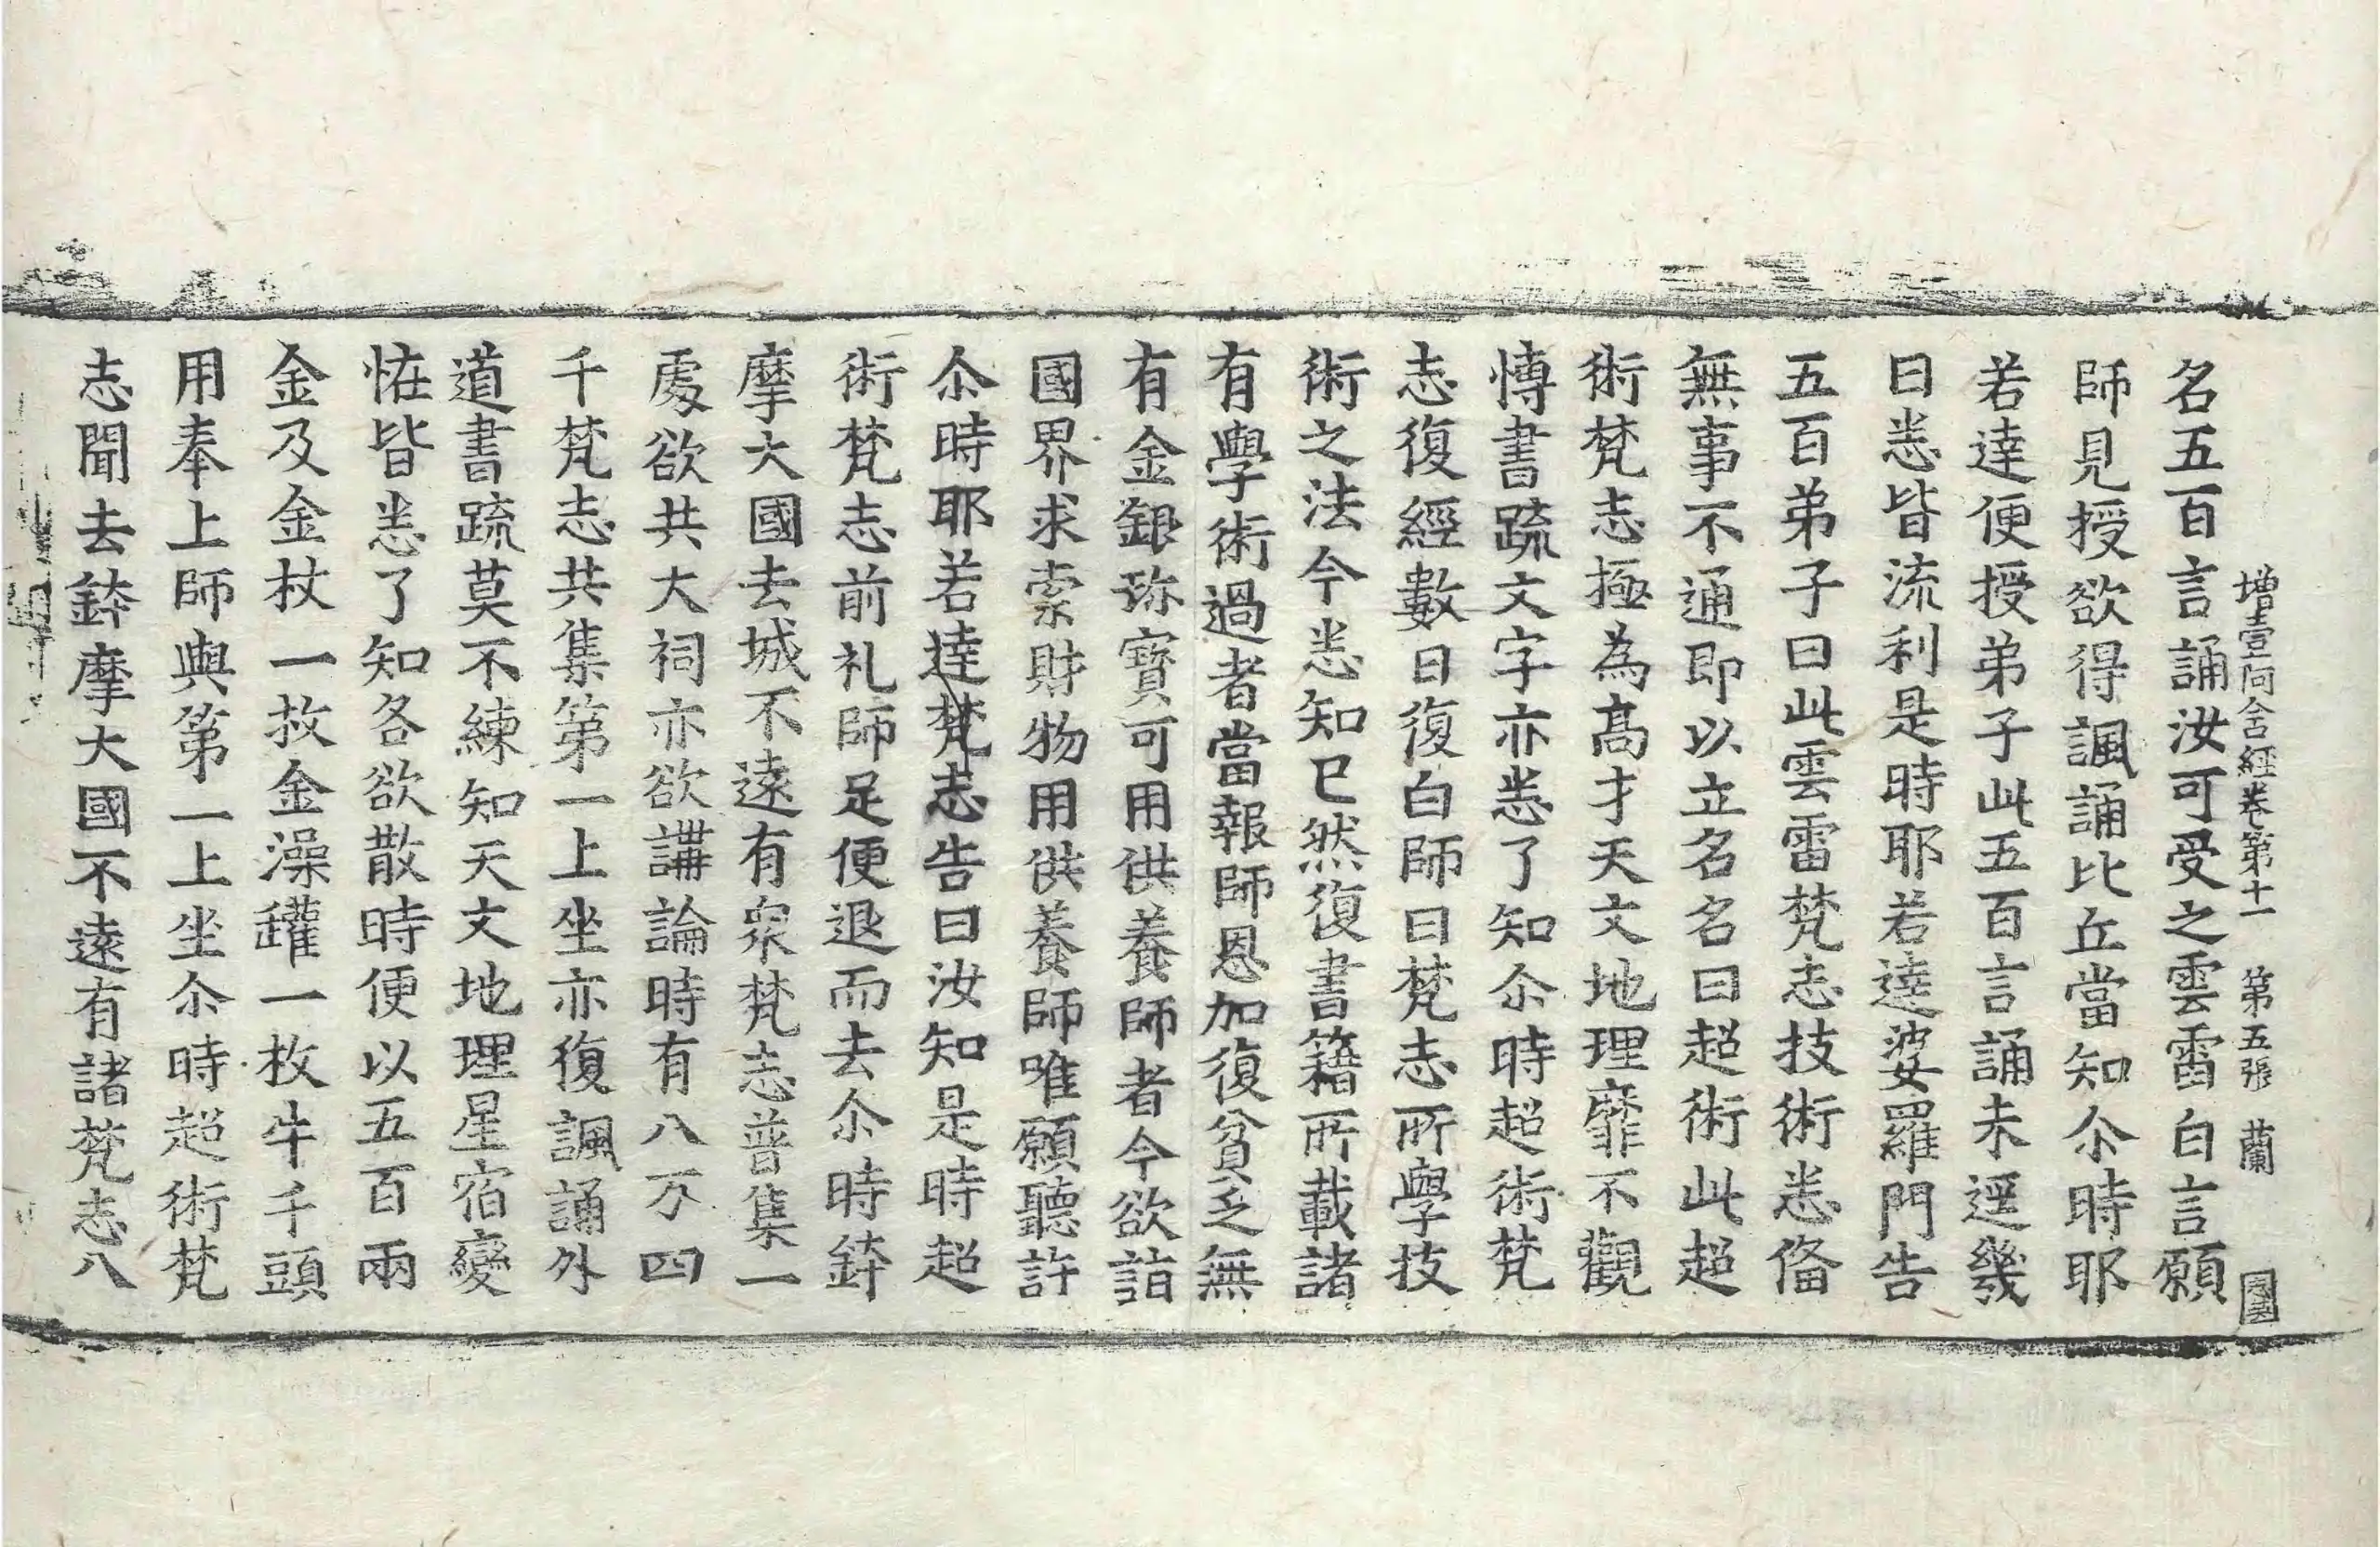 增壹阿含經卷第十一 第五張 蘭
名五百言誦汝可受之雲雷白言願
師見授欲得諷誦比丘當知尒時耶
若達便授弟子此五百言誦未逕幾
日悉皆流利是時耶若達婆羅門告
五百弟子曰此雲雷梵志技術悉俻
無事不通即以立名名曰超術此超
術梵志極為高才天文地理靡不觀
慱書䟽文字亦悉了知尒時超術梵
志復經數日復白師曰梵志所學技
術之法今悉知已然復書籍所載諸
有學術過者當報師恩加復貧乏無
有金銀珎寳可用供養師者今欲詣
國界求索財物用供養師唯願聽許
尒時耶若達梵志告曰汝知是時超
術梵志前礼師足便退而去尒時鉢
摩大國去城不遠有衆梵志普集一
處欲共大祠亦欲講論時有八万四
千梵志共集第一上坐亦復諷誦外
道書䟽莫不練知天文地理星宿變
恠皆悉了知各欲散時便以五百兩
金及金杖一枚金澡罐一枚牛千頭
用奉上師與第一上坐尒時超術梵
志聞去鉢摩大國不遠有諸梵志八